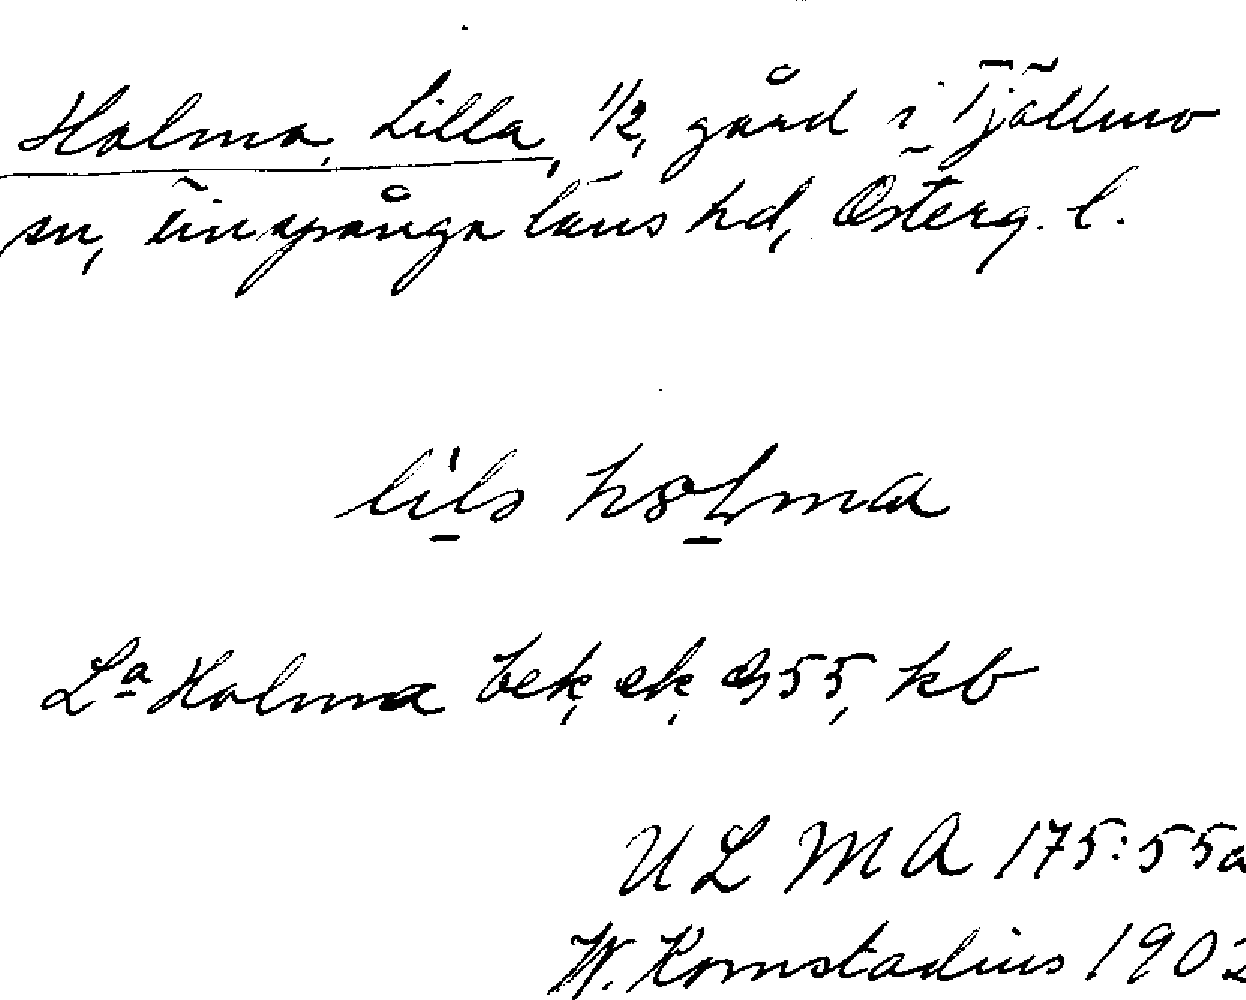 Holma, Lilla, 1/2, gård i Tjällmo
sn, Finspånga läns hd, Österg. l.
La Holma bek, ek, 55, kb
ULMA 175:55a
W. Kornstadius 1902